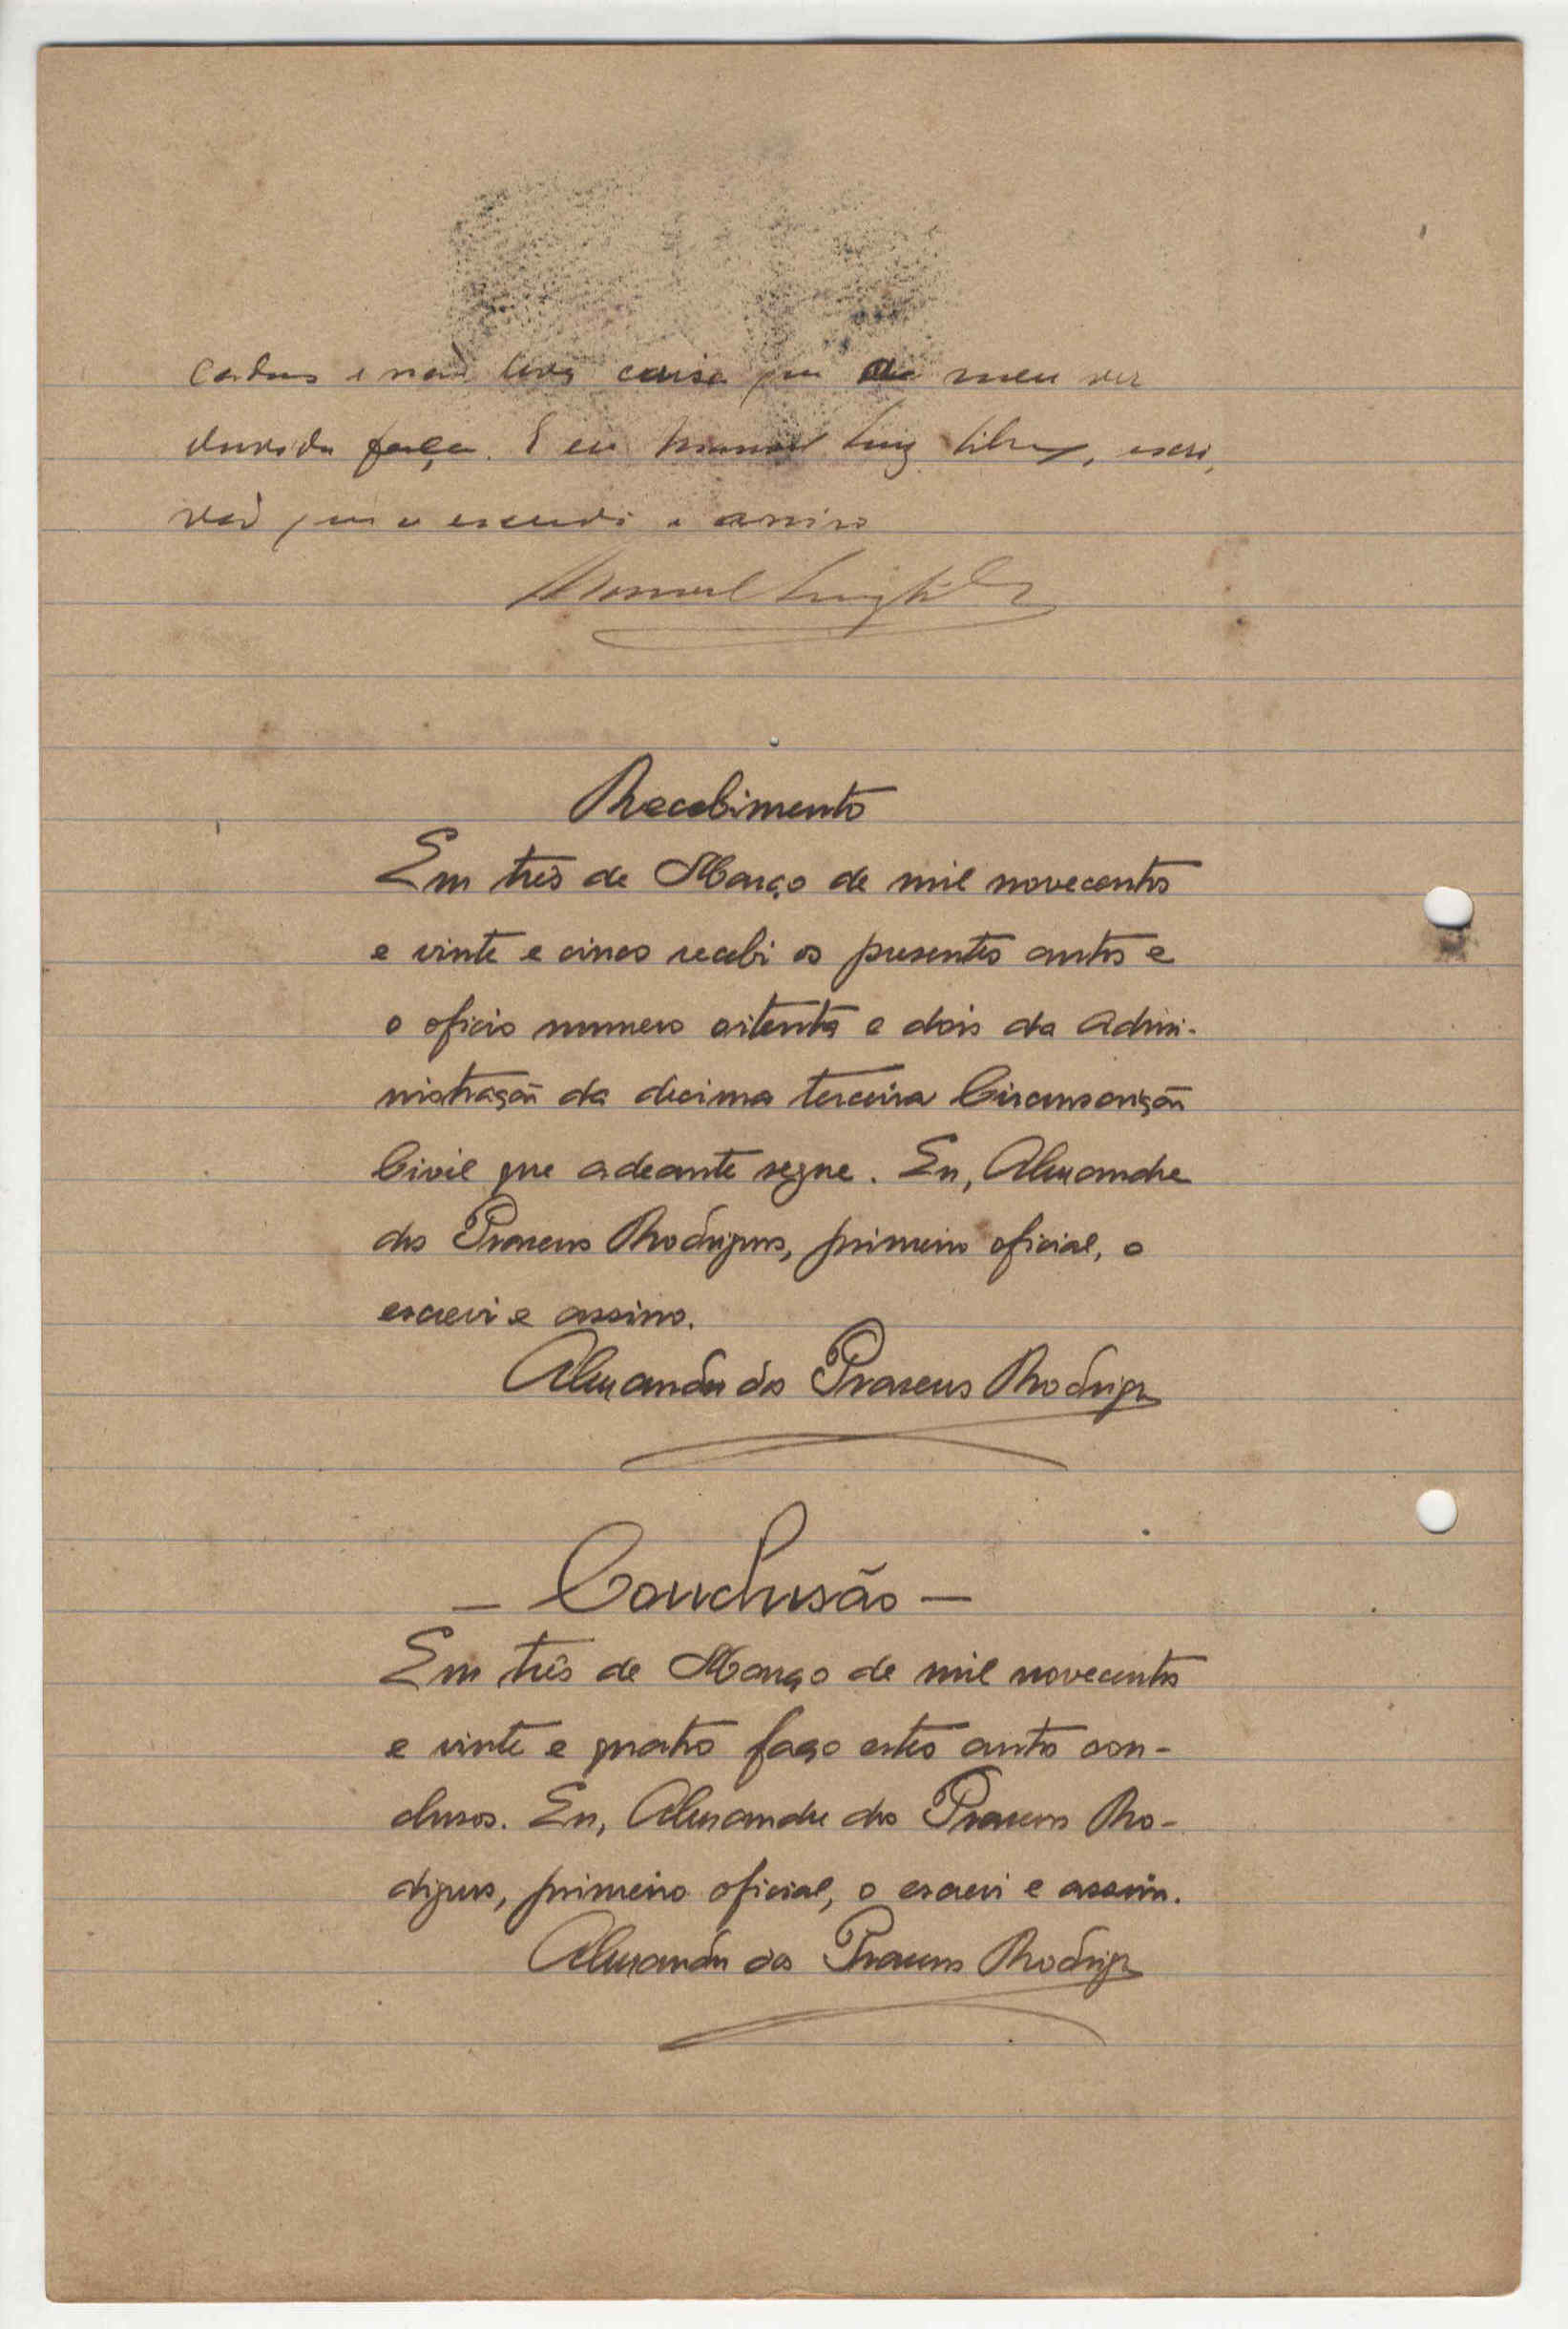 e não leva coisa que meu ver
duvida faça. E eu Manuel Luiz, escri,
vão que o escrevi e assino
Manuel Luiz
Recebimento
Em três de Março de mil novecentos
e vinte e cinco recebi os presentes autos e
o oficio numero oitenta e dois da Admi-
nistração da decima terceira Circunscrição
Civil que adeante segue. Eu, Alexandre
dos Prazeres Rodrigues, primeiro oficial, o
escrevi e assino.
Alexandre dos Prazeres Rodrigues
— Conclusão —
Em três de Março de mil novecentos
e vinte e quatro faço estes autos con-
clusos. Eu, Alexandre dos Prazeres Ro-
drigues, primeiro oficial, o escrevi e assino.
Alexandre dos Prazeres Rodrigues